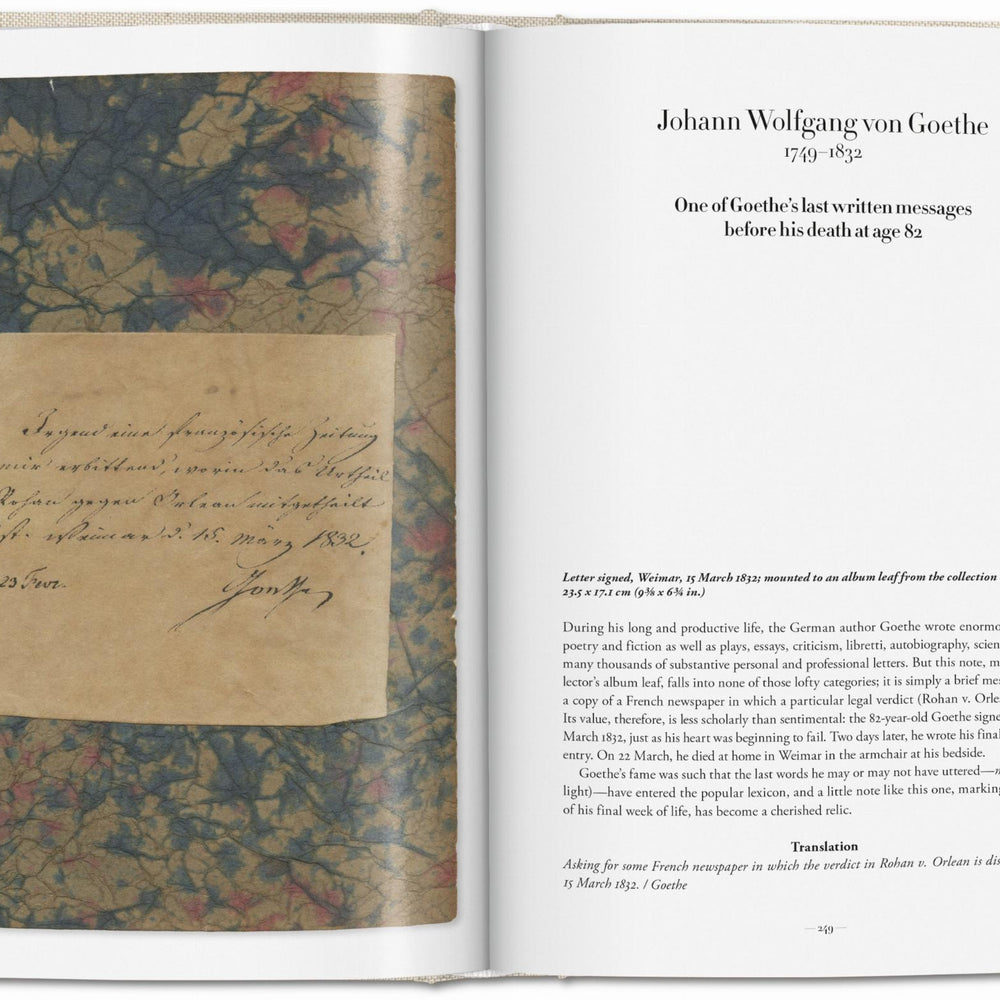 Irgend eine französische Zeitung
mir erbittend, worin das Urtheil
Rohan gegen Orlean mitgetheilt
st. Weimar d. 15. März 1832.
23 Febr.
Goethe
Johann Wolfgang von Goethe
1749–1832
One of Goethe's last written messages
before his death at age 82
Letter signed, Weimar, 15 March 1832; mounted to an album leaf from the collection
23.5 x 17.1 cm (9⅜ x 6¾ in.)
During his long and productive life, the German author Goethe wrote enormo
poetry and fiction as well as plays, essays, criticism, libretti, autobiography, scien
many thousands of substantive personal and professional letters. But this note, m
lector's album leaf, falls into none of those lofty categories; it is simply a brief me
a copy of a French newspaper in which a particular legal verdict (Rohan v. Orle
Its value, therefore, is less scholarly than sentimental: the 82-year-old Goethe signe
March 1832, just as his heart was beginning to fail. Two days later, he wrote his final
entry. On 22 March, he died at home in Weimar in the armchair at his bedside.
Goethe's fame was such that the last words he may or may not have uttered—m
light)—have entered the popular lexicon, and a little note like this one, marking
of his final week of life, has become a cherished relic.
Translation
Asking for some French newspaper in which the verdict in Rohan v. Orlean is dis
15 March 1832. / Goethe
—249—